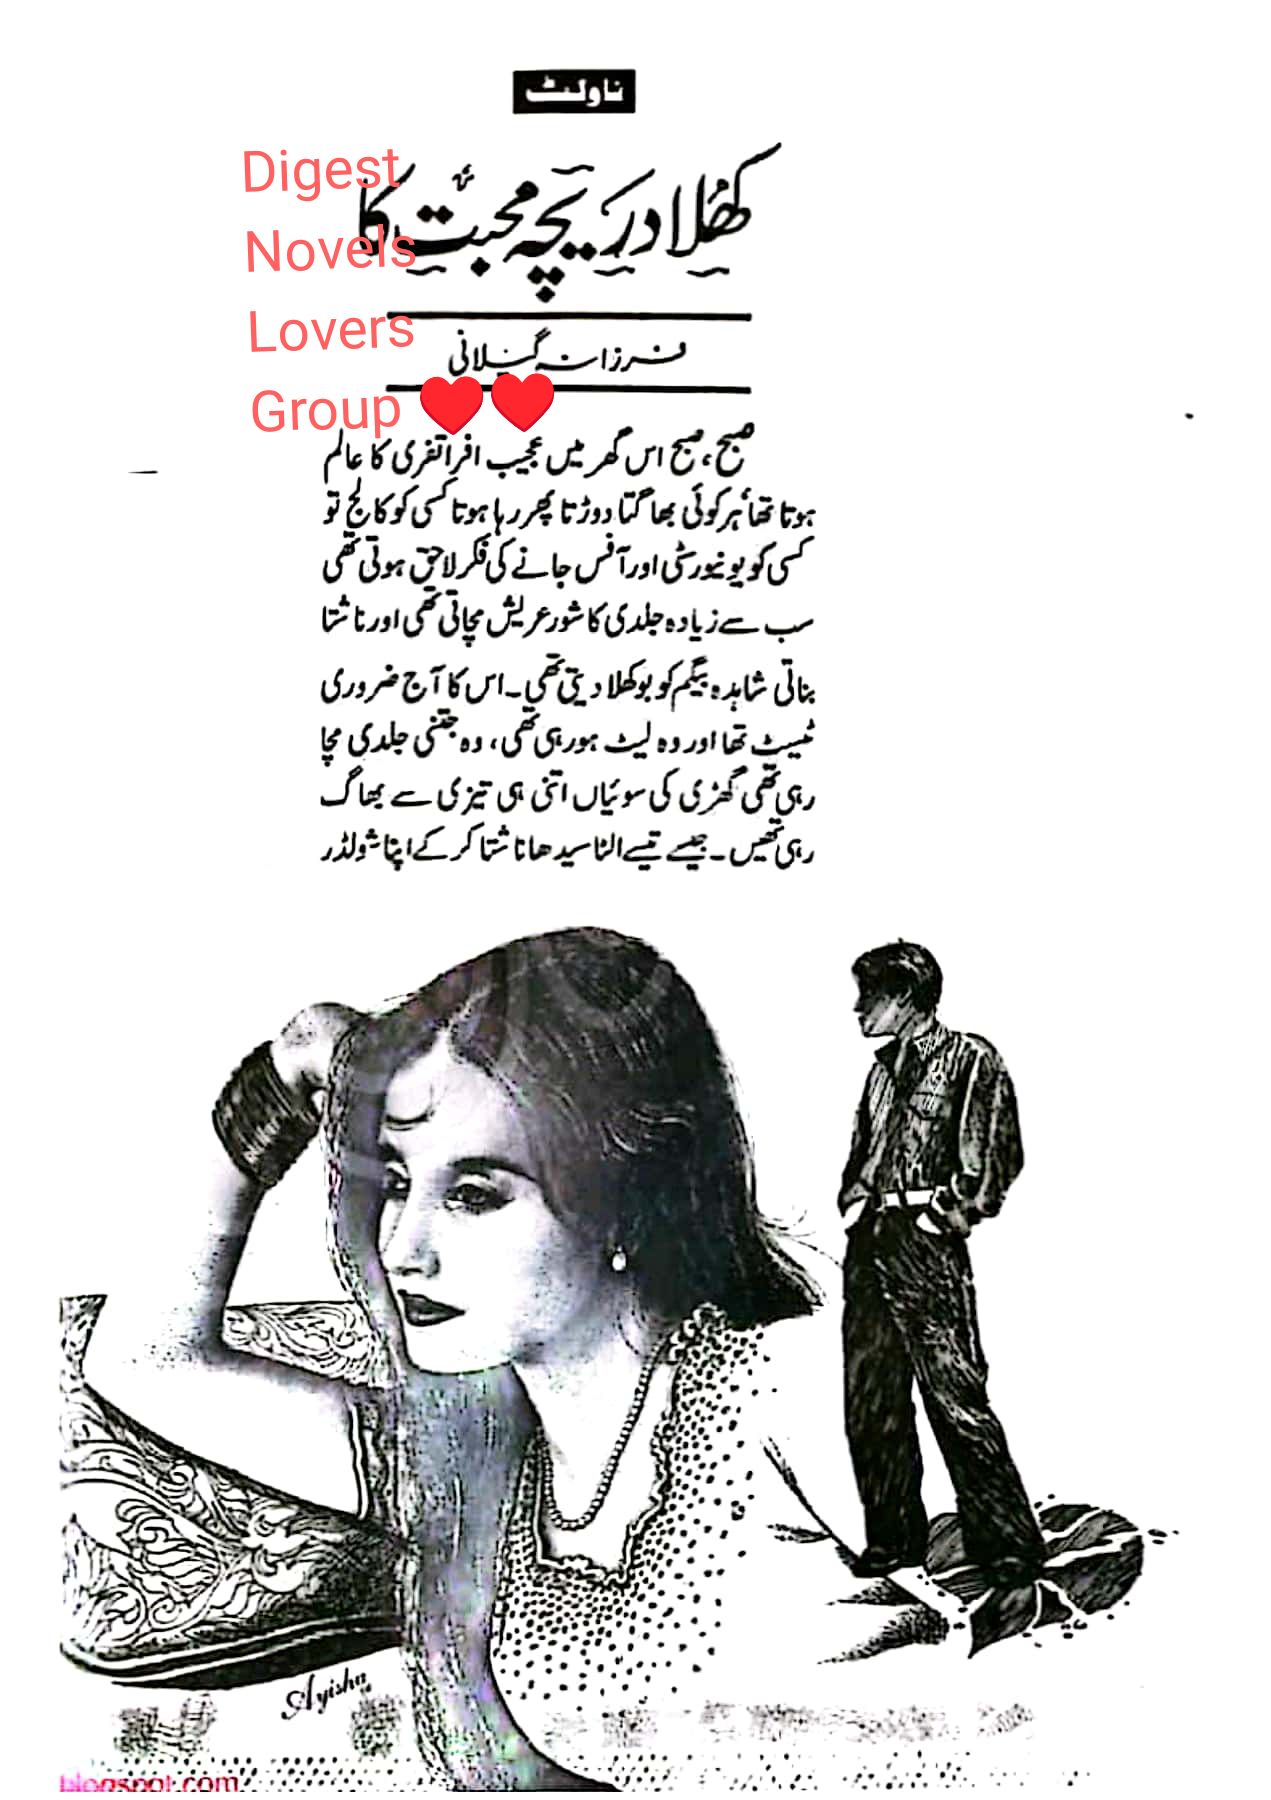 ناولٹ
کھُلا دریچہ محبت کا
فرزانہ گیلانی
Digest
Novels
Lovers
Group ❤️❤️
صبح، صبح اس گھر میں عجیب افراتفری کا عالم
ہوتا تھا ہر کوئی بھاگتا دوڑتا پھر رہا ہوتا کسی کو کالج تو
کسی کو یونیورسٹی اور آفس جانے کی فکر لاحق ہوتی تھی
سب سے زیادہ جلدی کا شور عریش مچاتی تھی اور ناشتا
بناتی شاہدہ بیگم کو بوکھلا دیتی تھی۔ اس کا آج ضروری
ٹیسٹ تھا اور وہ لیٹ ہو رہی تھی، وہ جتنی جلدی مچا
رہی تھی گھڑی کی سوئیاں اتنی ہی تیزی سے بھاگ
رہی تھیں۔ جیسے تیسے الٹا سیدھا ناشتا کر کے اپنا شولڈر
Ayisha
blogspot.com